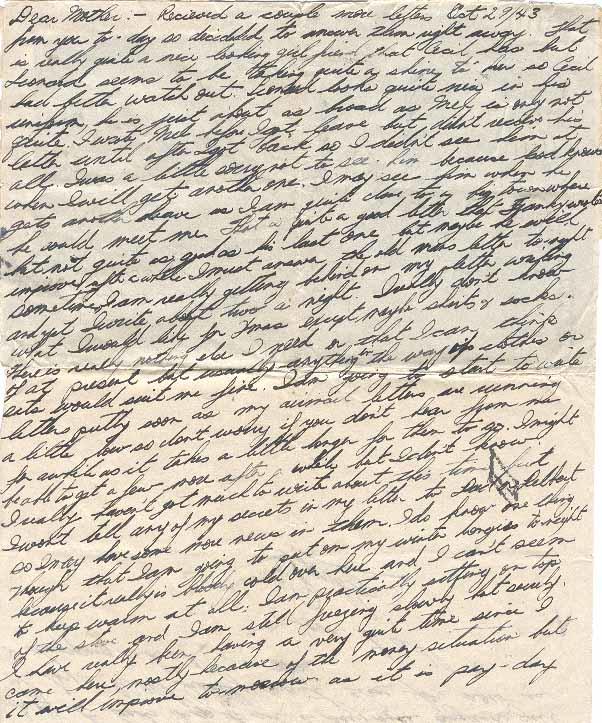 Dear Mother:- Recieved a couple more letters Oct 29/43
from you to-day so decided to answer them right away. That
is really quite a nice looking girl friend that Cecil has but
Leonard seems to be taking quite a shine to her so Cecil
had better watch out. Leonard looks quite nice in his
uniform he is just about as broad as Mel is only not
quite. I wrote Mel before I got leave but didn't receive his
letter until after I got back so I didn't see him at
all. I was a little sorry not to see him because God knows
when I will get another one. I may see him when he
gets another leave as I am quite close to a big town where
he could meet me. That is quite a good letter that wrote
but not quite as good as his last one but maybe he will
improve after a while. I must answer the old mans letter to-night
sometime, I am really getting behind on my letter writing
and yet I write about two a night. I really don't know
what I would like for Xmas except maybe shirts & socks.
There is really nothing else I need or that I can think
of at present but usually anything in the way of clothes or
eats would suit me fine. I am going to start to write
letters pretty soon as my airmail letters are running
a little low so don't worry if you don't hear from me
for awhile as it takes a little longer for them to go. I might
be able to get a few more after a while but I don't know.
I really haven't got much to write about this time but
I won't tell any of my secrets in my letter to
so I may have some more news in them. I do know one thing
though that I am going to put on my winter to-night
because it really is cold over here and I can't seem
to keep warm at all. I am practically sitting on top
of the stove and I am still freezing slowly but surely.
I have really been having a very quiet time since I
came here, mostly because of the money situation but
it will improve to-morrow as it is pay-day